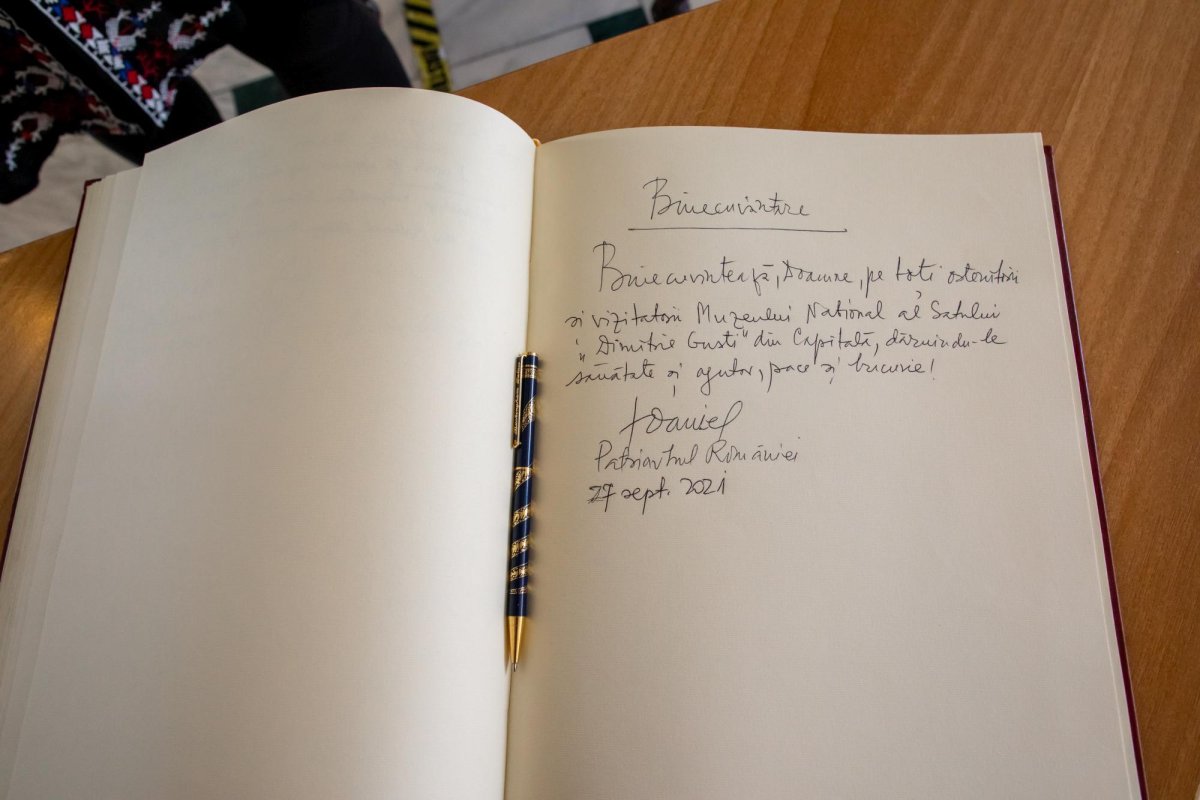 Binecuvântare
Binecuvintează, Doamne, pe toți ostenitorii
și vizitatorii Muzeului Național al Satului
„Dimitrie Gusti” din Capitală, dăruindu-le
sănătate și ajutor, pace și bucurie!
†Daniel
Patriarhul României
27 sept. 2021